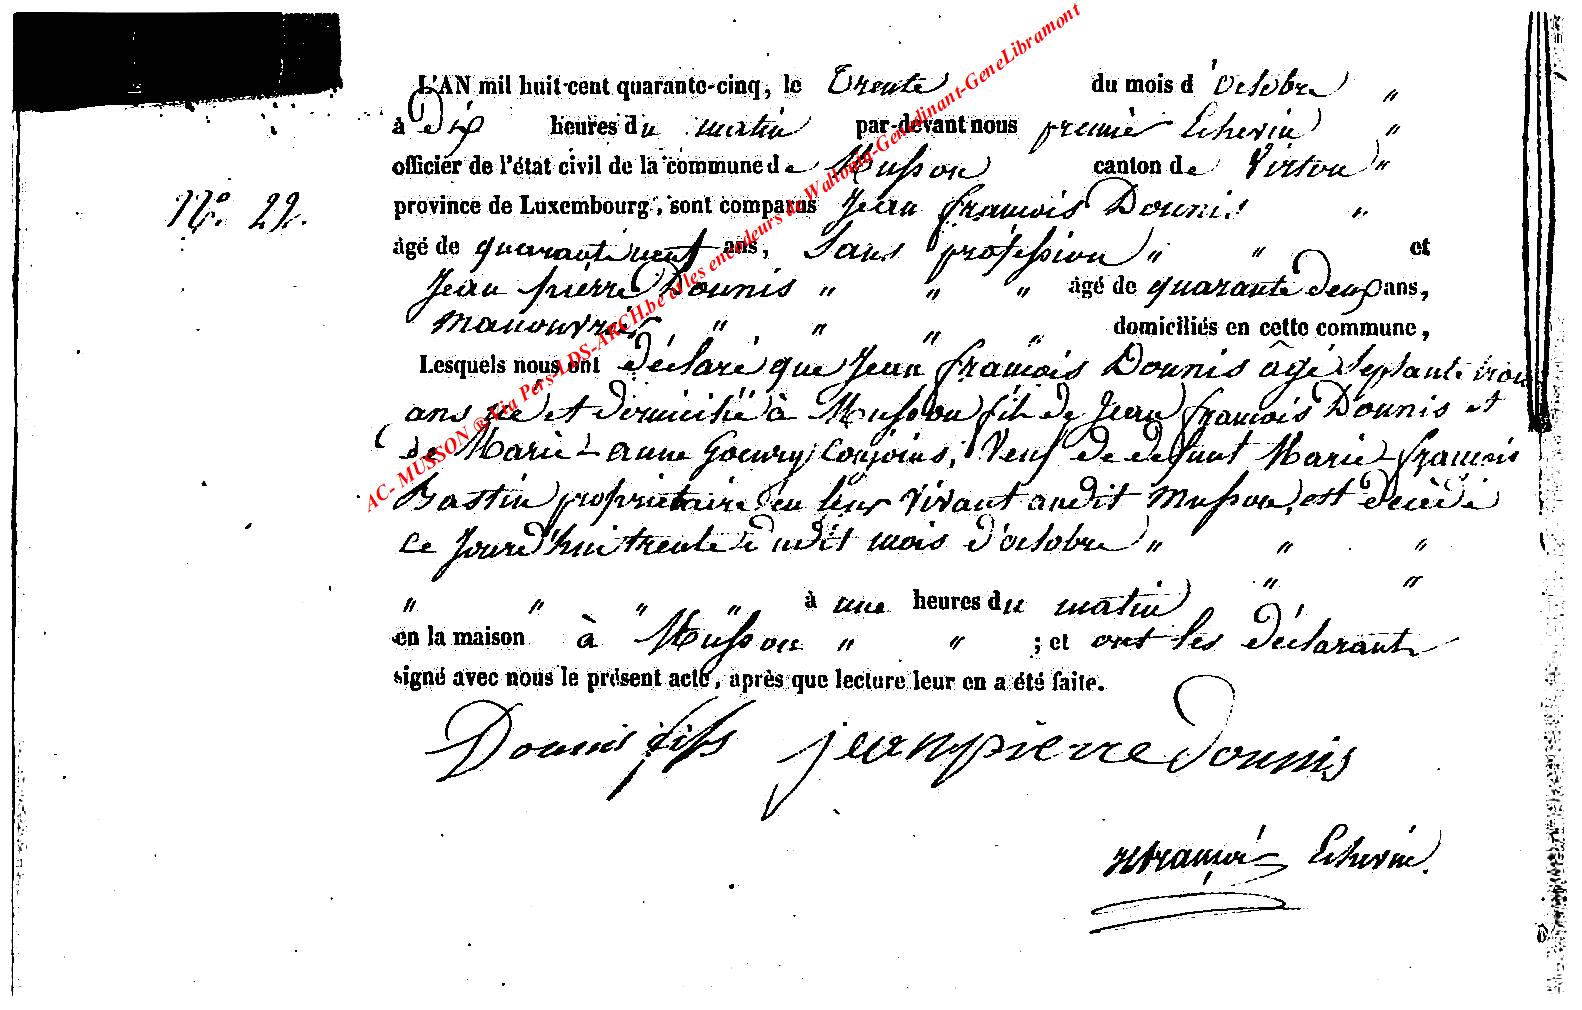 L'AN mil huit-cent quarante-cinq, le Trente du mois d'octobre "
à Dix heures du matin par-devant nous premier Echevin "
officier de l'état civil de la commune de Musson canton de Virton "
N° 22. province de Luxembourg, sont comparus Jean françois Dounis "
âgé de quarante neuf ans, Sans profession " " et
Jean pierre Dounis " " " âgé de quarante deux ans,
manouvrier " " " " domiciliés en cette commune,
Lesquels nous ont déclaré que Jean françois Dounis âgé Septante trois
ans né et domicilié à Musson fils de Jean françois Dounis et
de Marie-anne Goury conjoins, Veuf de defunt Marie françois
Bastin propriétaire en leur vivant audit Musson, est décédé
ce Jourd'hui trente dudit mois d'octobre " " "
" " " " à une heures du matin " "
en la maison à Musson " " ; et ont les déclarants
signé avec nous le présent acte, après que lecture leur en a été faite.
Dounis fils jean pierre Dounis
Echevin
AC- MUSSON @ Via Pers-LDS-ARCH.be & les encodeurs de Wallonia-Genedinant-GeneLibramont